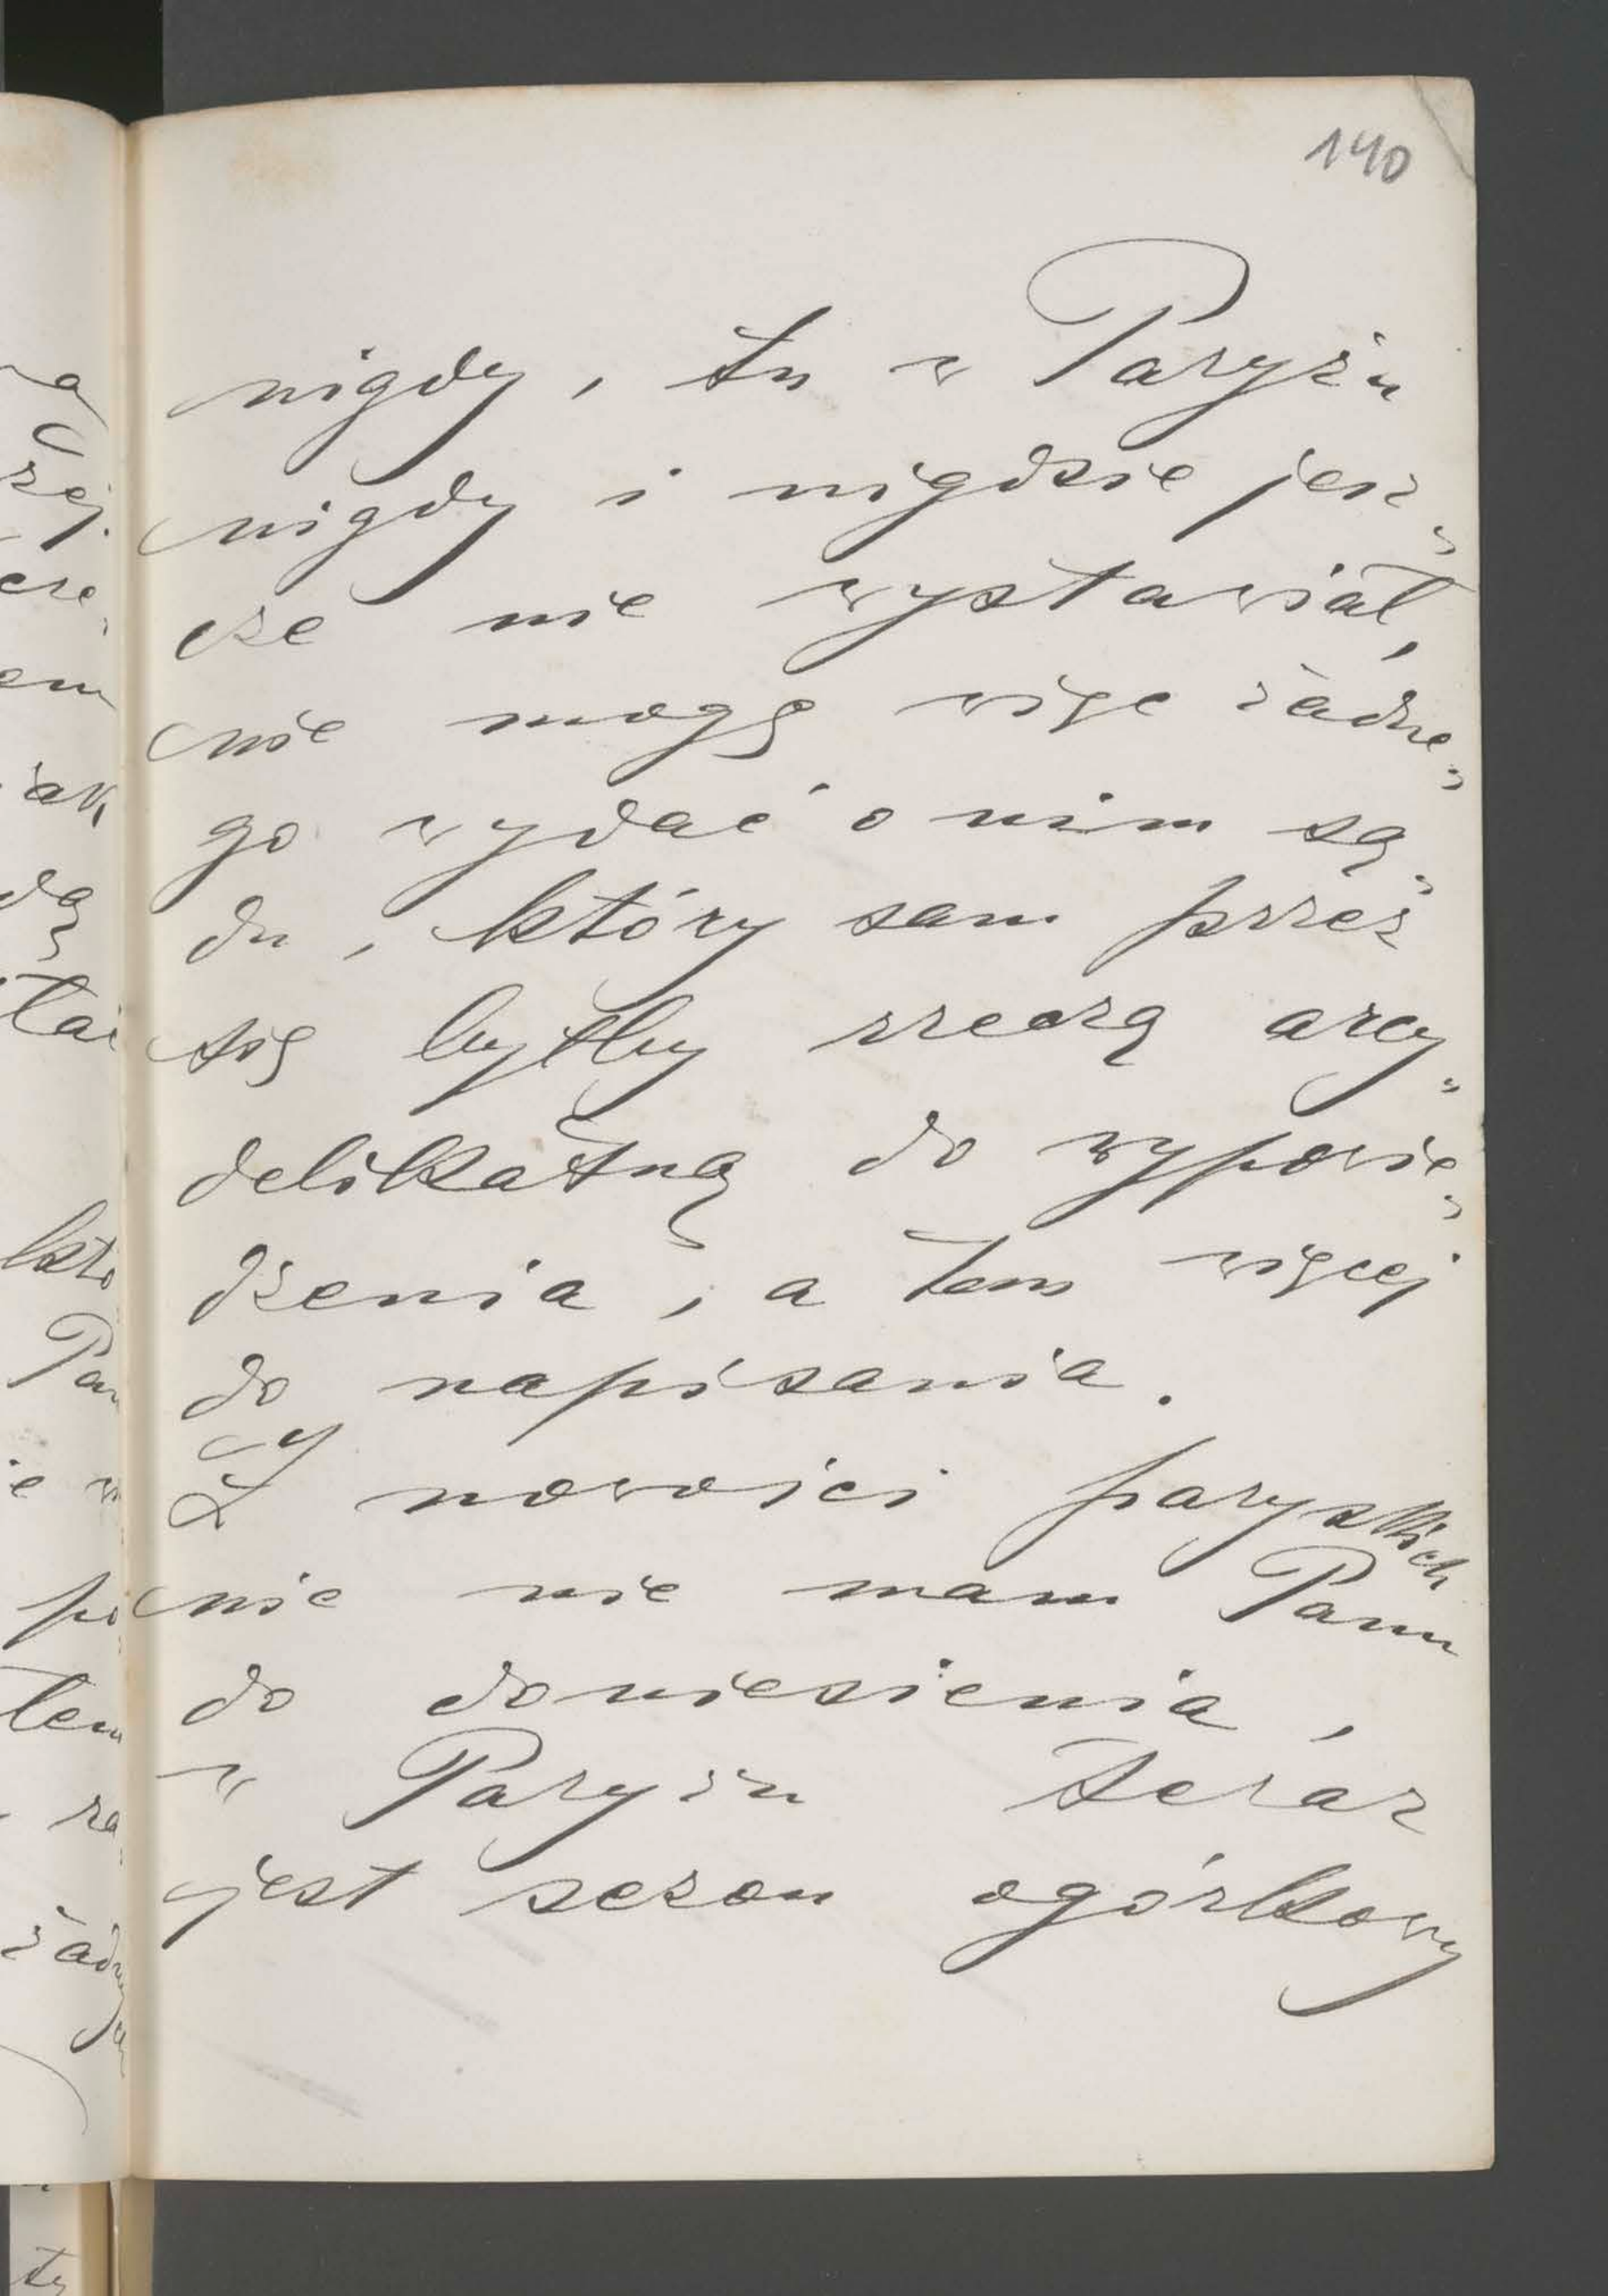 140
nigdy, tu w Paryżu
nigdy i nigdzie jesz„
cze nie wystawiał,
nie mogę więc żadne„
go wydać o nim są„
du, który sam przez
się byłby rzeczą arcy„
delikatną do wypowie„
dzenia, a tem więcej
do napisania.
Z nowości paryskich
nic nie mam Panu
do doniesienia,
w Paryżu teraz
jest sezon ogórkowy